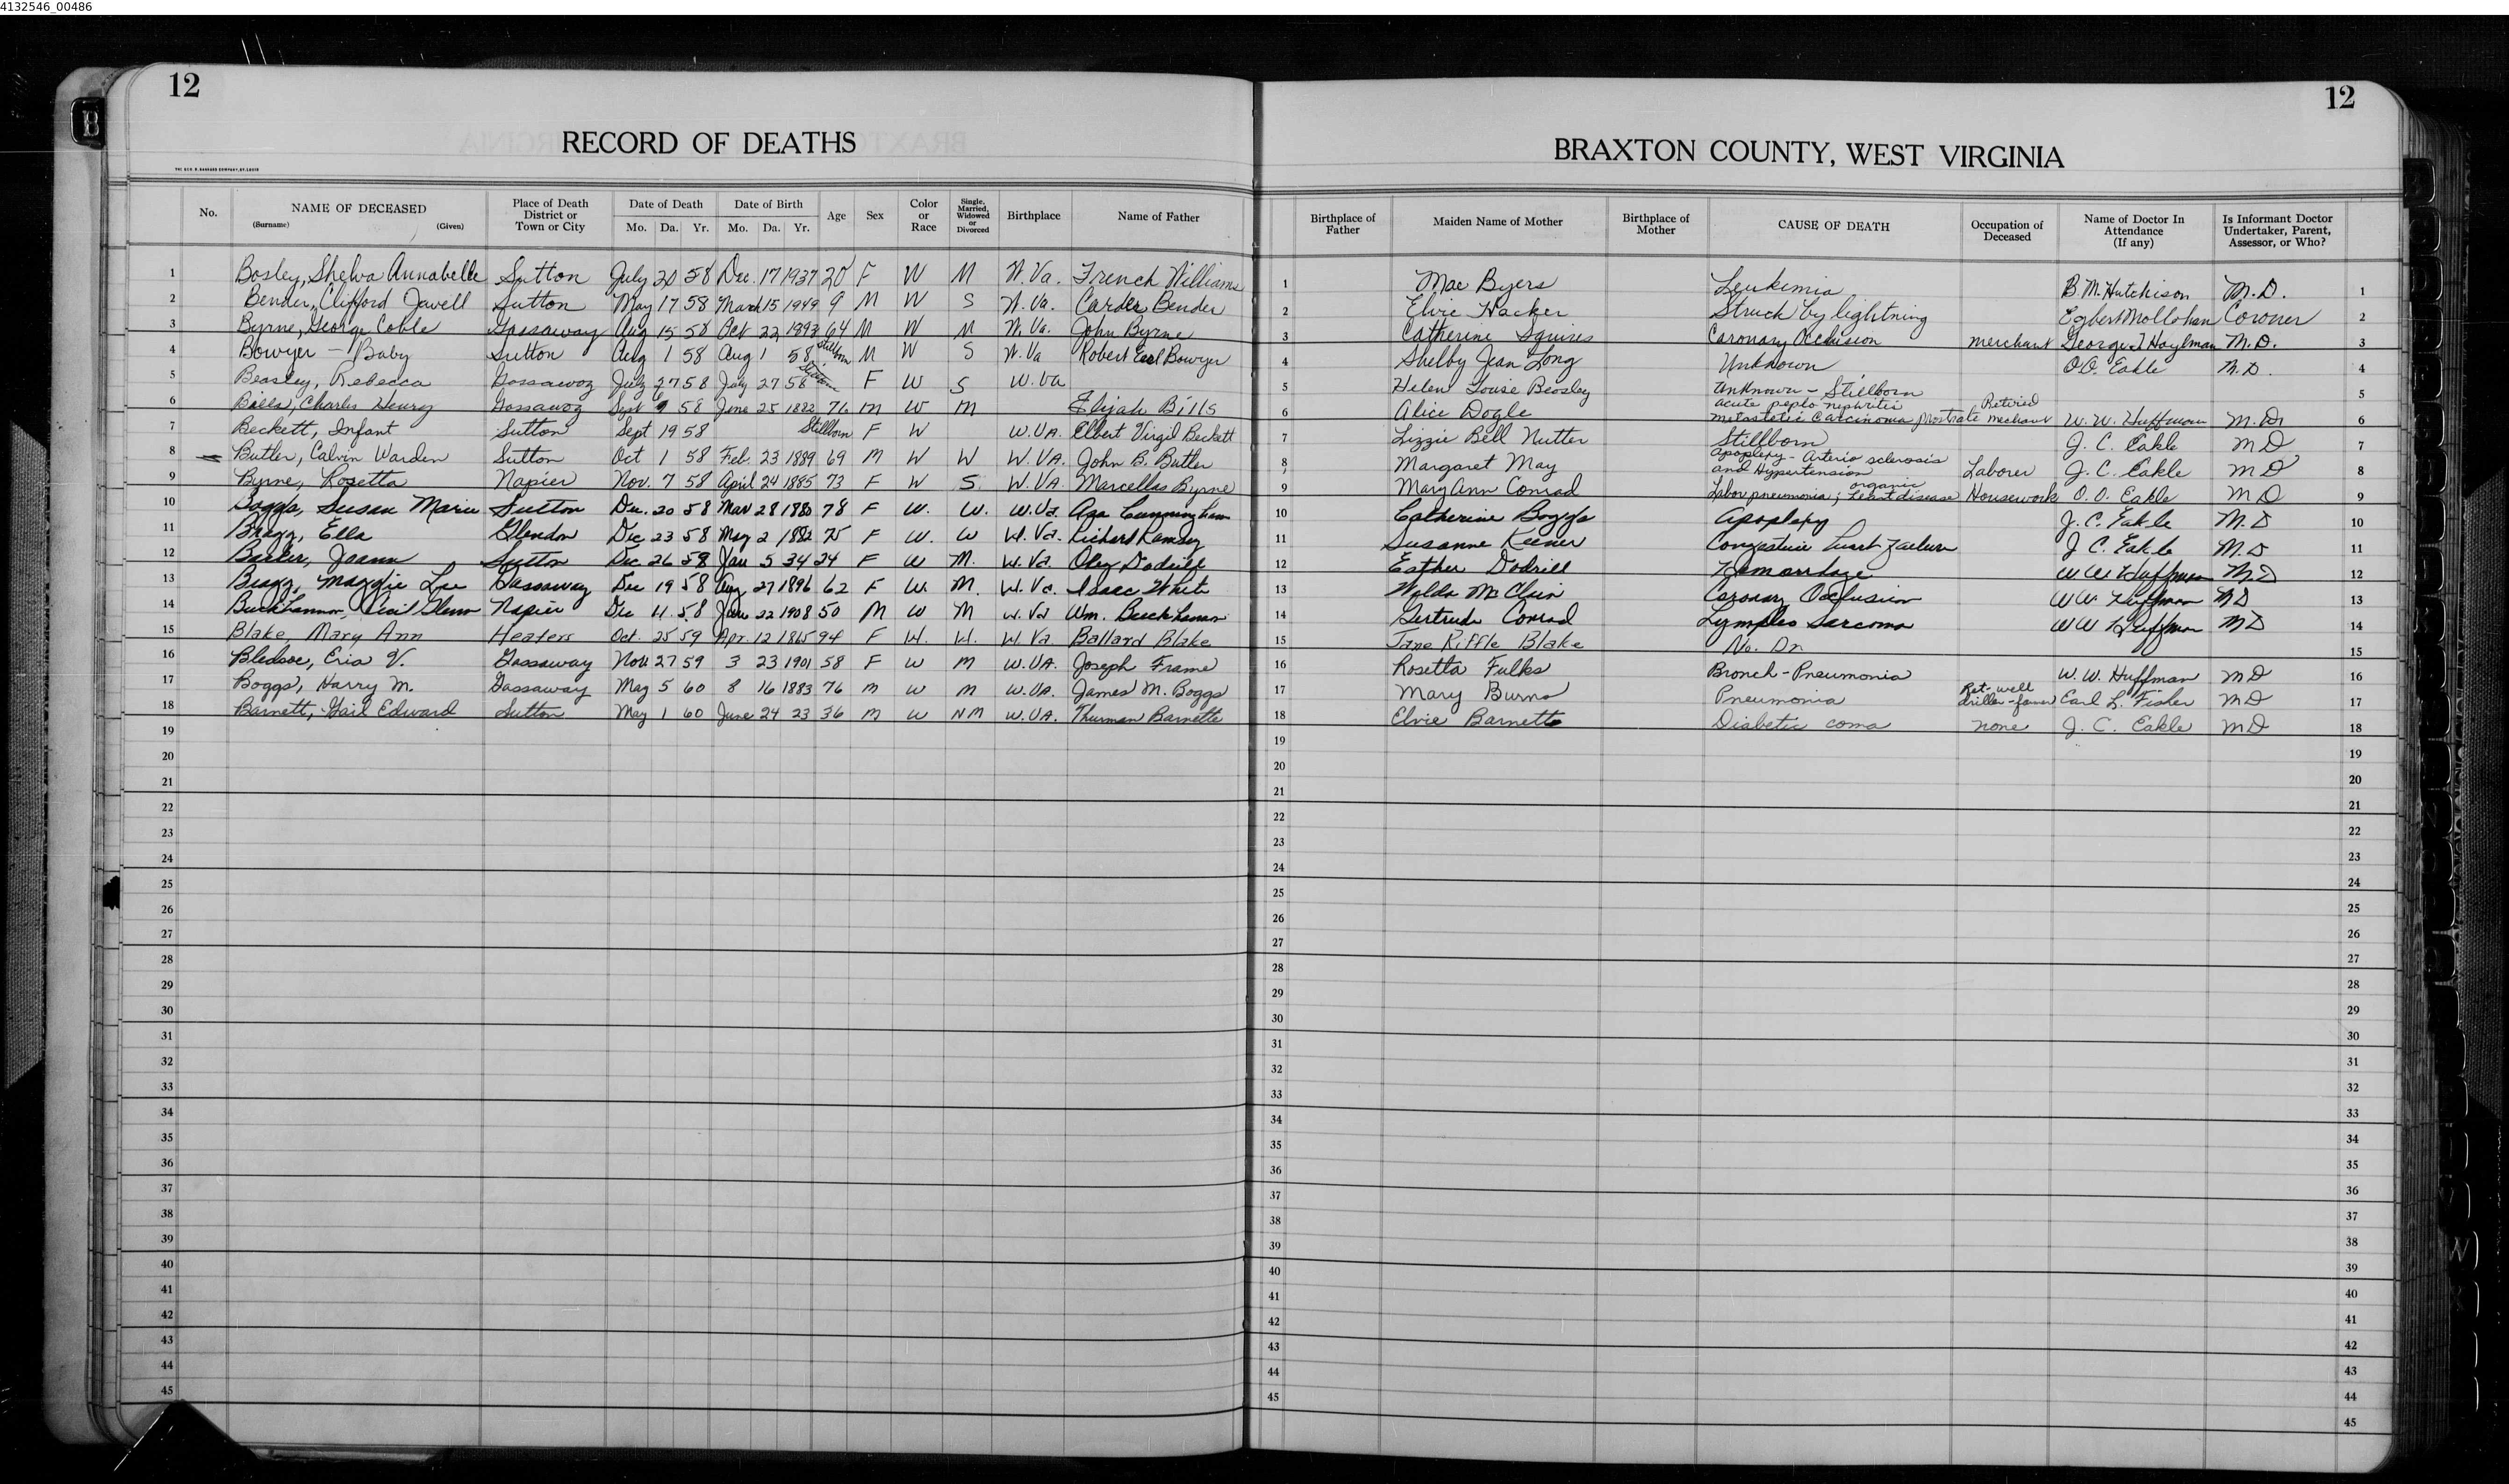 4132546_00486
12
12
B
RECORD OF DEATHS
BRAXTON COUNTY, WEST VIRGINIA
No. NAME OF DECEASED (Surname) (Given) Place of Death District or Town or City Date of Death Mo. Da. Yr. Date of Birth Mo. Da. Yr. Age Sex Color or Race Single, Married, Widowed or Divorced Birthplace Name of Father Birthplace of Father Maiden Name of Mother Birthplace of Mother CAUSE OF DEATH Occupation of Deceased Name of Doctor In Attendance (If any) Is Informant Doctor Undertaker, Parent, Assessor, or Who?
1 Bosley, Shelva Annabelle Sutton July 20 58 Dec. 17 1937 20 F W M W.Va. French Williams 1 Mae Byers Leukimia B M. Hutchison M.D. 1
2 Bender, Clifford Jawell Sutton May 17 58 March 15 1949 9 M W S W.Va. Carder Bender 2 Elvie Hacker Struck by lightning Egbert Mollohan Coroner 2
3 Byrne, George Coble Gassaway Aug 15 58 Oct 22 1893 64 M W M W.Va. John Byrne 3 Catherine Squires Coronary Occlusion merchant George T Hoylman M.D. 3
4 Bowyer - Baby Sutton Aug 1 58 Aug 1 58 Stillborn M W S W.Va Robert Earl Bowyer 4 Shelby Jean Long Unknown O.O. Eakle M.D. 4
5 Beasley, Rebecca Gassaway July 27 58 July 27 58 Stillborn F W S W.Va 5 Helen Louise Beasley Unknown - Stillborn 5
6 Bills, Charles Henry Gassaway Sept 9 58 June 25 1882 76 M W M Elijah Bills 6 Alice Dogle acute peplo nephritis metastetic Carcinoma prostrate Retired mechant W. W. Huffman M.D. 6
7 Beckett, Infant Sutton Sept 19 58 Stillborn F W W.VA. Elbert Virgil Beckett 7 Lizzie Bell Nutter Stillborn J. C. Eakle MD 7
8 Butler, Calvin Warden Sutton Oct 1 58 Feb. 23 1889 69 M W W W.VA. John B. Butler 8 Margaret May apoplexy - Arterio sclerosis and Hypertension Laborer J. C. Eakle MD 8
9 Byrne, Rosetta Napier Nov. 7 58 April 24 1885 73 F W S W.VA. Marcellas Byrne 9 Mary Ann Conrad Lobar pneumonia; organic heart disease Housework O. O. Eakle MD 9
10 Boggs, Susan Marie Sutton Dec. 20 58 Mar 28 1880 78 F W. W. W.Va. Asa Cunningham 10 Catherine Boggs Apoplexy J. C. Eakle M.D 10
11 Bragg, Ella Glendon Dec 23 58 May 2 1882 75 F W. W W.Va. Richard Ramsey 11 Susanne Keener Congestive heart failure J C. Eakle M.D 11
12 Baxter, Joann Sutton Dec 26 58 Jan 5 34 24 F W M. W.Va. Oley Dodrill 12 Esther Dodrill Hemorrhage W W. Huffman M.D 12
13 Bragg, Maggie Lee Gassaway Dec 19 58 Aug 27 1896 62 F W. M. W.Va. Isaac White 13 Walda McClain Coronary Occlusion W W. Huffman MD 13
14 Buckhannon, Cecil Glenn Napier Dec 4 58 June 22 1908 50 M W M W.Va Wm. Buckhannon 14 Gertrude Conrad Lympho Sarcoma W W Huffman MD 14
15 Blake, Mary Ann Heaters Oct. 25 59 Apr. 12 1865 94 F W. W. W.Va. Ballard Blake 15 Jane Riffle Blake No. Dr. 15
16 Bledsoe, Eria V. Gassaway Nov. 27 59 3 23 1901 58 F W M W.VA. Joseph Frame 16 Rosetta Fulks Bronch-Pneumonia W. W. Huffman MD 16
17 Boggs, Harry M. Gassaway May 5 60 8 16 1883 76 M W M W.VA. James M. Boggs 17 Mary Burns Pneumonia Ret-well driller-farmer Earl L. Fisher MD 17
18 Barnett, Gail Edward Sutton May 1 60 June 24 23 36 M W NM W.VA. Thurman Barnette 18 Elvie Barnette Diabetic coma none J. C. Eakle MD 18
19 19 19
20 20 20
21 21 21
22 22 22
23 23 23
24 24 24
25 25 25
26 26 26
27 27 27
28 28 28
29 29 29
30 30 30
31 31 31
32 32 32
33 33 33
34 34 34
35 35 35
36 36 36
37 37 37
38 38 38
39 39 39
40 40 40
41 41 41
42 42 42
43 43 43
44 44 44
45 45 45